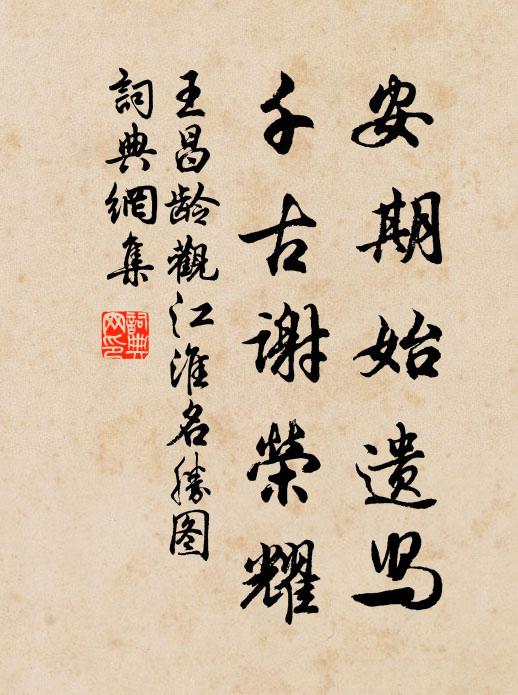 安期始遗舄
千古谢荣耀
王昌龄觀江淮名勝图
詞典網集
詞典網印